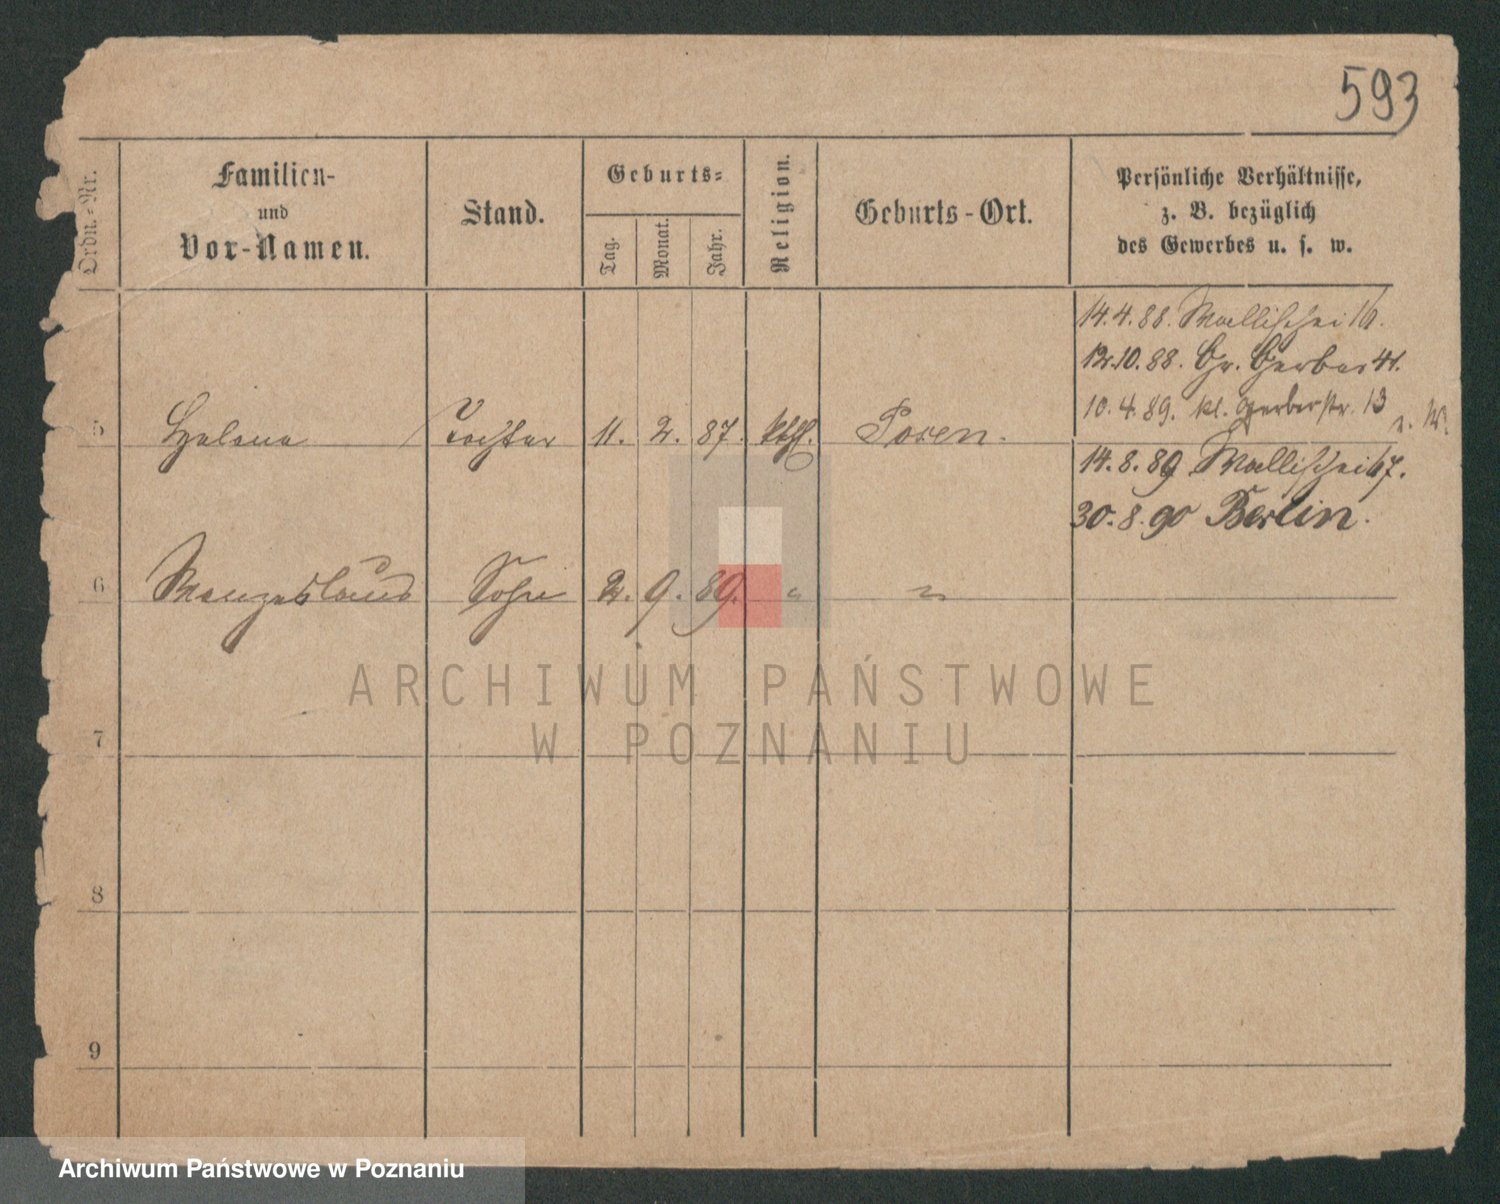 593
Ordn.-Nr.
Familien-
und
Vor-Namen.
Stand.
Geburts-
Tag.
Monat.
Jahr.
Religion.
Geburts-Ort.
Persönliche Verhältnisse,
z. B. bezüglich
des Gewerbes u. s. w.
14.4.88. Wallischei 16.
12.10.88. Gr. Gerber 41.
10.4.89. Kl. Gerberstr. 13
5 Helena Tochter 11. 2. 87. kthl. Posen.
14.8.89 Wallischei 67.
30.8.90 Berlin.
6 Wenzeslaus Sohn 2. 9. 89. " "
ARCHIWUM PAŃSTWOWE
W POZNANIU
7
8
9
Archiwum Państwowe w Poznaniu